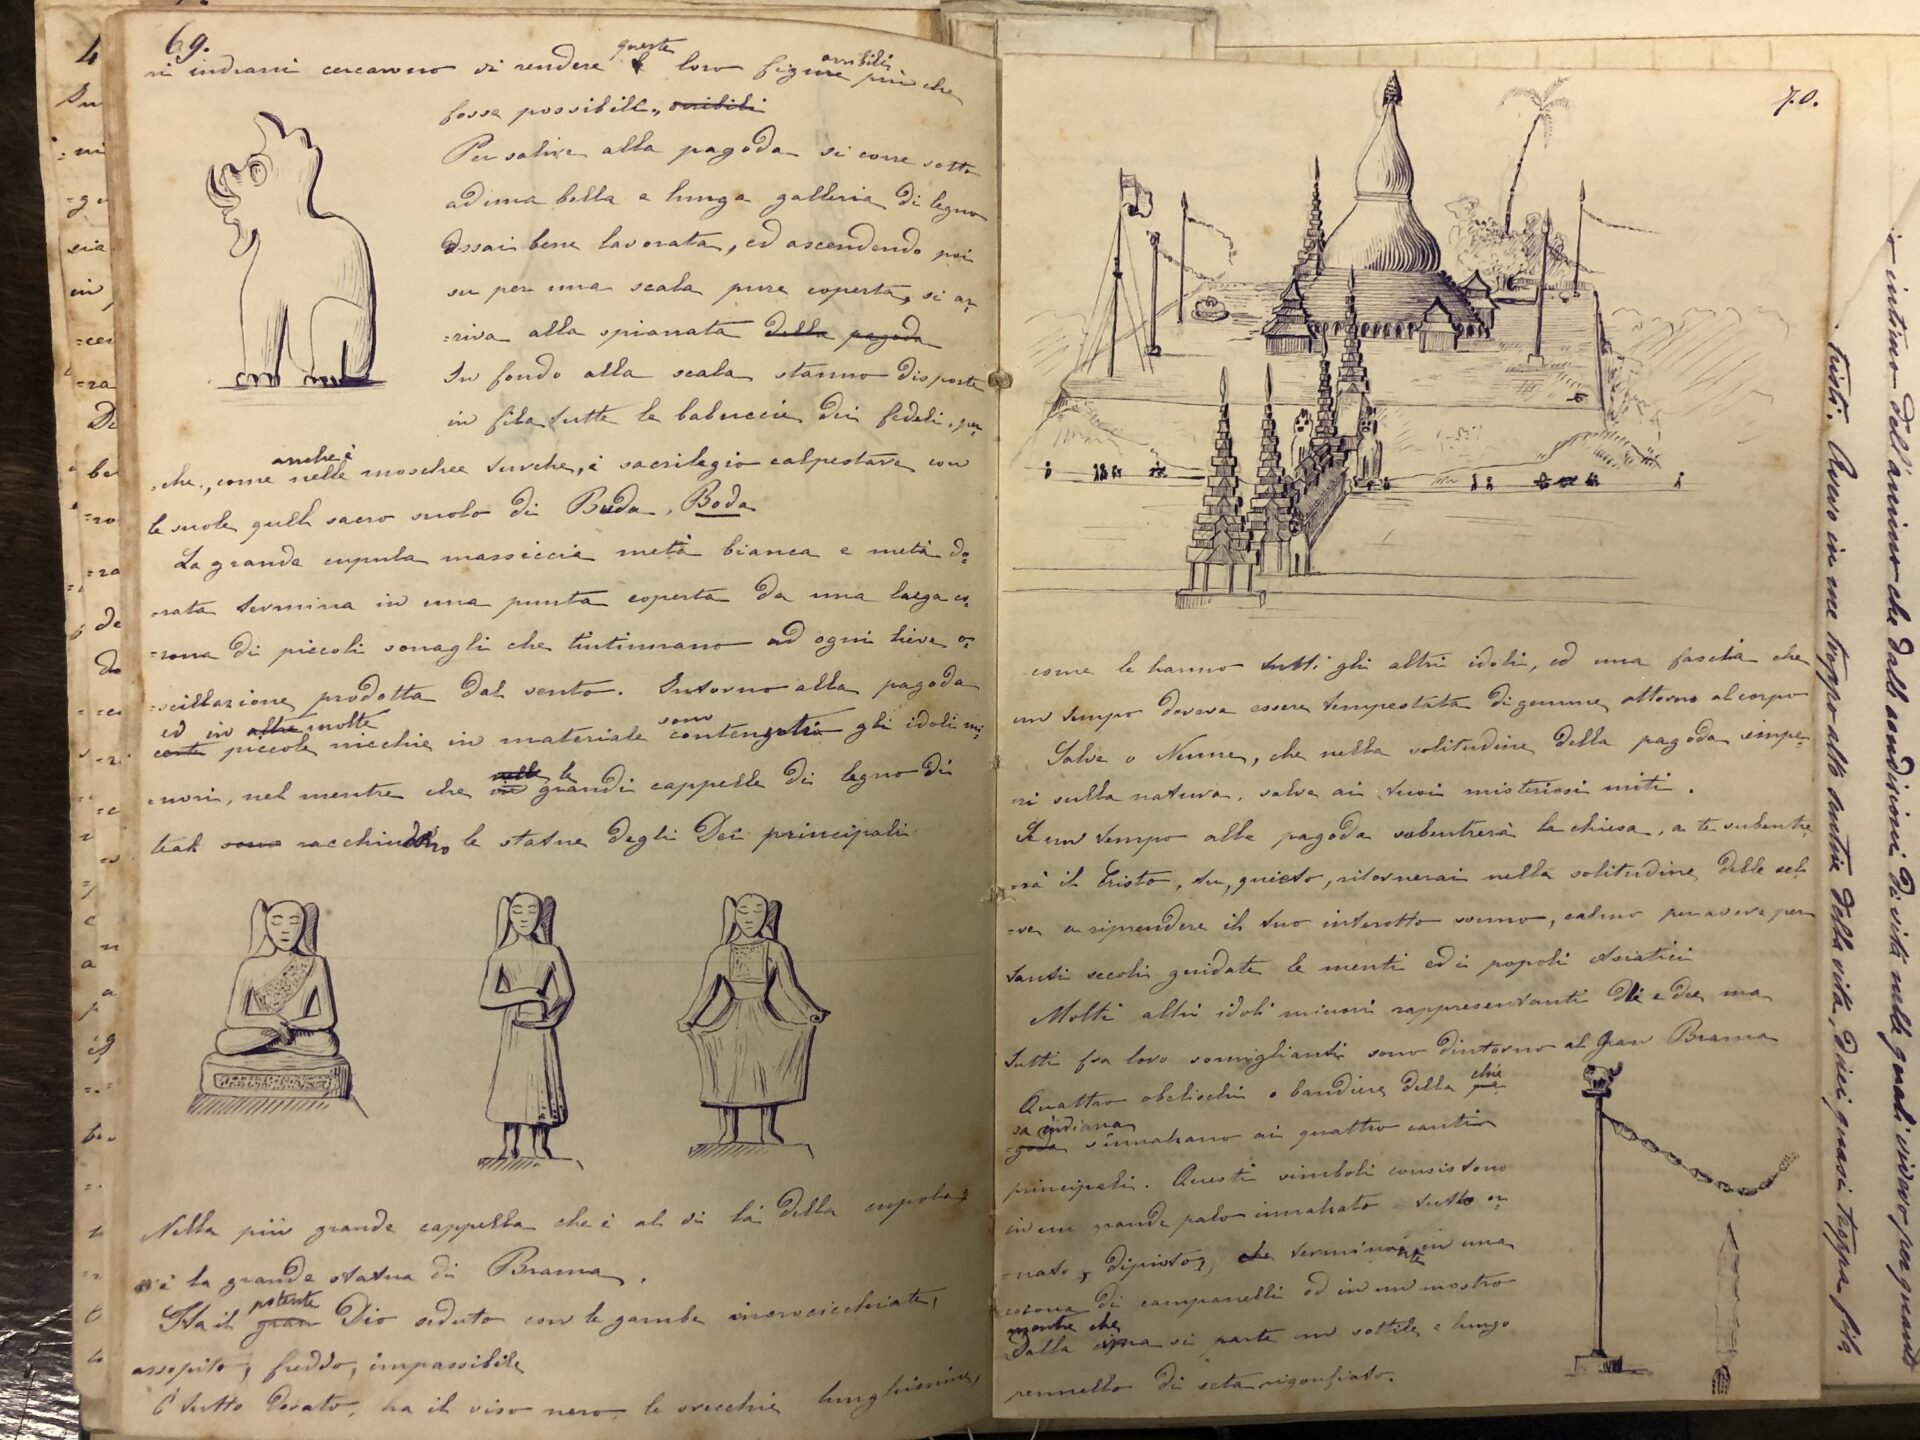 69.
ri indiani cercarono di rendere queste loro figure orribili più che
fosse possibile, orribili
Per salire alla pagoda si corre sotto
ad una bella e lunga galleria di legno
assai bene lavorata, ed ascendendo poi
su per una scala pure coperta, si ar-
=riva alla spianata della pagoda
In fondo alla scala stanno disposte
in fila tutte le babuccie dei fedeli, per-
=che, come anche è nelle moschee turche, è sacrilegio calpestare con
le suole quel sacro suolo di Buda, Boda
La grande cupola massiccia metà bianca e metà do-
=rata termina in una punta coperta da una larga co-
=rona di piccoli sonagli che tintinnano ad ogni lieve o-
=scillazione prodotta dal vento. Intorno alla pagoda
ed in altre molte
piccole nicchie in materiale sono contenuti gli idoli mi-
=nori, nel mentre che le grandi cappelle di legno di
teak sono racchiudono le statue degli Dei principali
Nella più grande cappella che è al di là della cupola,
v'è la grande statua di Brama.
Sta il gran potente Dio seduto con le gambe incrocicchiate,
assopito, freddo, impassibile
È tutto dorato, ha il viso nero, le orecchie lunghissime,
70.
come le hanno tutti gli altri idoli, ed una fascia che
un tempo doveva essere tempestata di gemme attorno al corpo
Salve o Nume, che nella solitudine della pagoda impe-
=ri sulla natura, salve ai tuoi misteriosi miti.
Se un tempo alla pagoda subentrerà la chiesa, a te subentre-
=rà il Cristo, tu, quieto, ritornerai nella solitudine delle sel-
=ve a riprendere il tuo interotto sonno, calmo per avere per
tanti secoli guidate le menti ed i popoli Asiatici
Molti altri idoli minori rappresentanti Dei e dee, ma
tutti fra loro somiglianti sono dintorno al Gran Brama
Quattro obelischi o bandiere della chie-
sa indiana
=goda s'innalzano ai quattro canti
principali. Questi simboli consistono
in un grande palo innalzato tutto or-
=nato, dipinto, che terminante in una
corona di campanelli ed in un mostro
mentre che
dalla cima si parte un sottile e lungo
pennello di seta rigonfiato.
intimo dell'animo che dalle condizioni di vita nelle quali vivevo per quanto
tristi. Avevo in me tempo allo sentire della vita, dieci quasi troppa fila